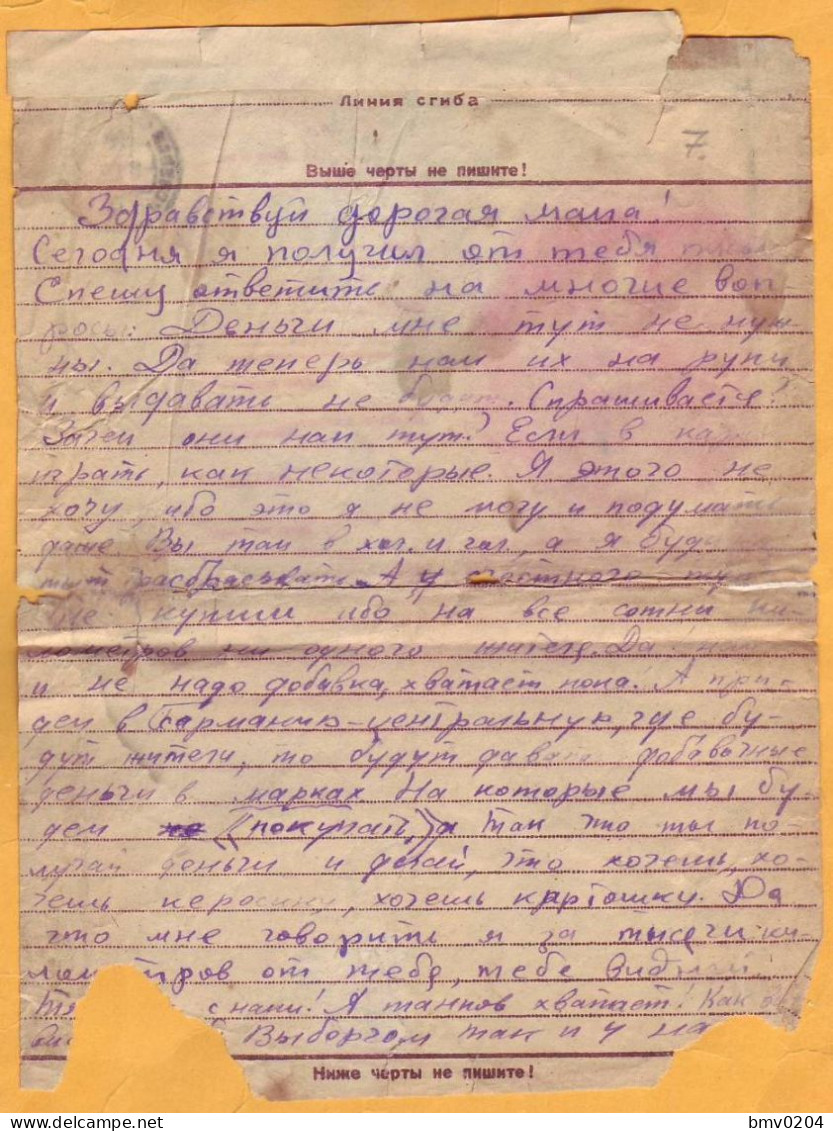 Линия сгиба
7.
Выше черты не пишите!
Здравствуй дорогая мама!
Сегодня я получил от тебя
Спешу ответить на многие воп-
росы. Деньги мне тут не нуж-
ны. Да теперь нам их на руки
и выдавать не будут. Спрашивается?
Зачем они нам тут? Если в
играть, как некоторые. Я этого не
хочу, ибо это я не могу и подумать
даже. Вы там в хол. и гол, а я буду
тут разбрасывать. А у
не купиш ибо на все сотни ки-
лометров ни одного жителя. Да! нам
и не надо добавка, хватает пока. А при-
дем в Германию-центральную, где бу-
дут жители, то будут давать добавочные
деньги в марках На которые мы бу-
дем "покупать" Так что ты по-
лучай деньги и делай, что хочешь, хо-
чешь керосину, хочешь картошку. Да
что мне говорить я за тысячи ки-
лометров от тебя, тебе видней
с нами! А танков хватает! Как
Выборгом так и у на
Ниже черты не пишите!
bmv0204